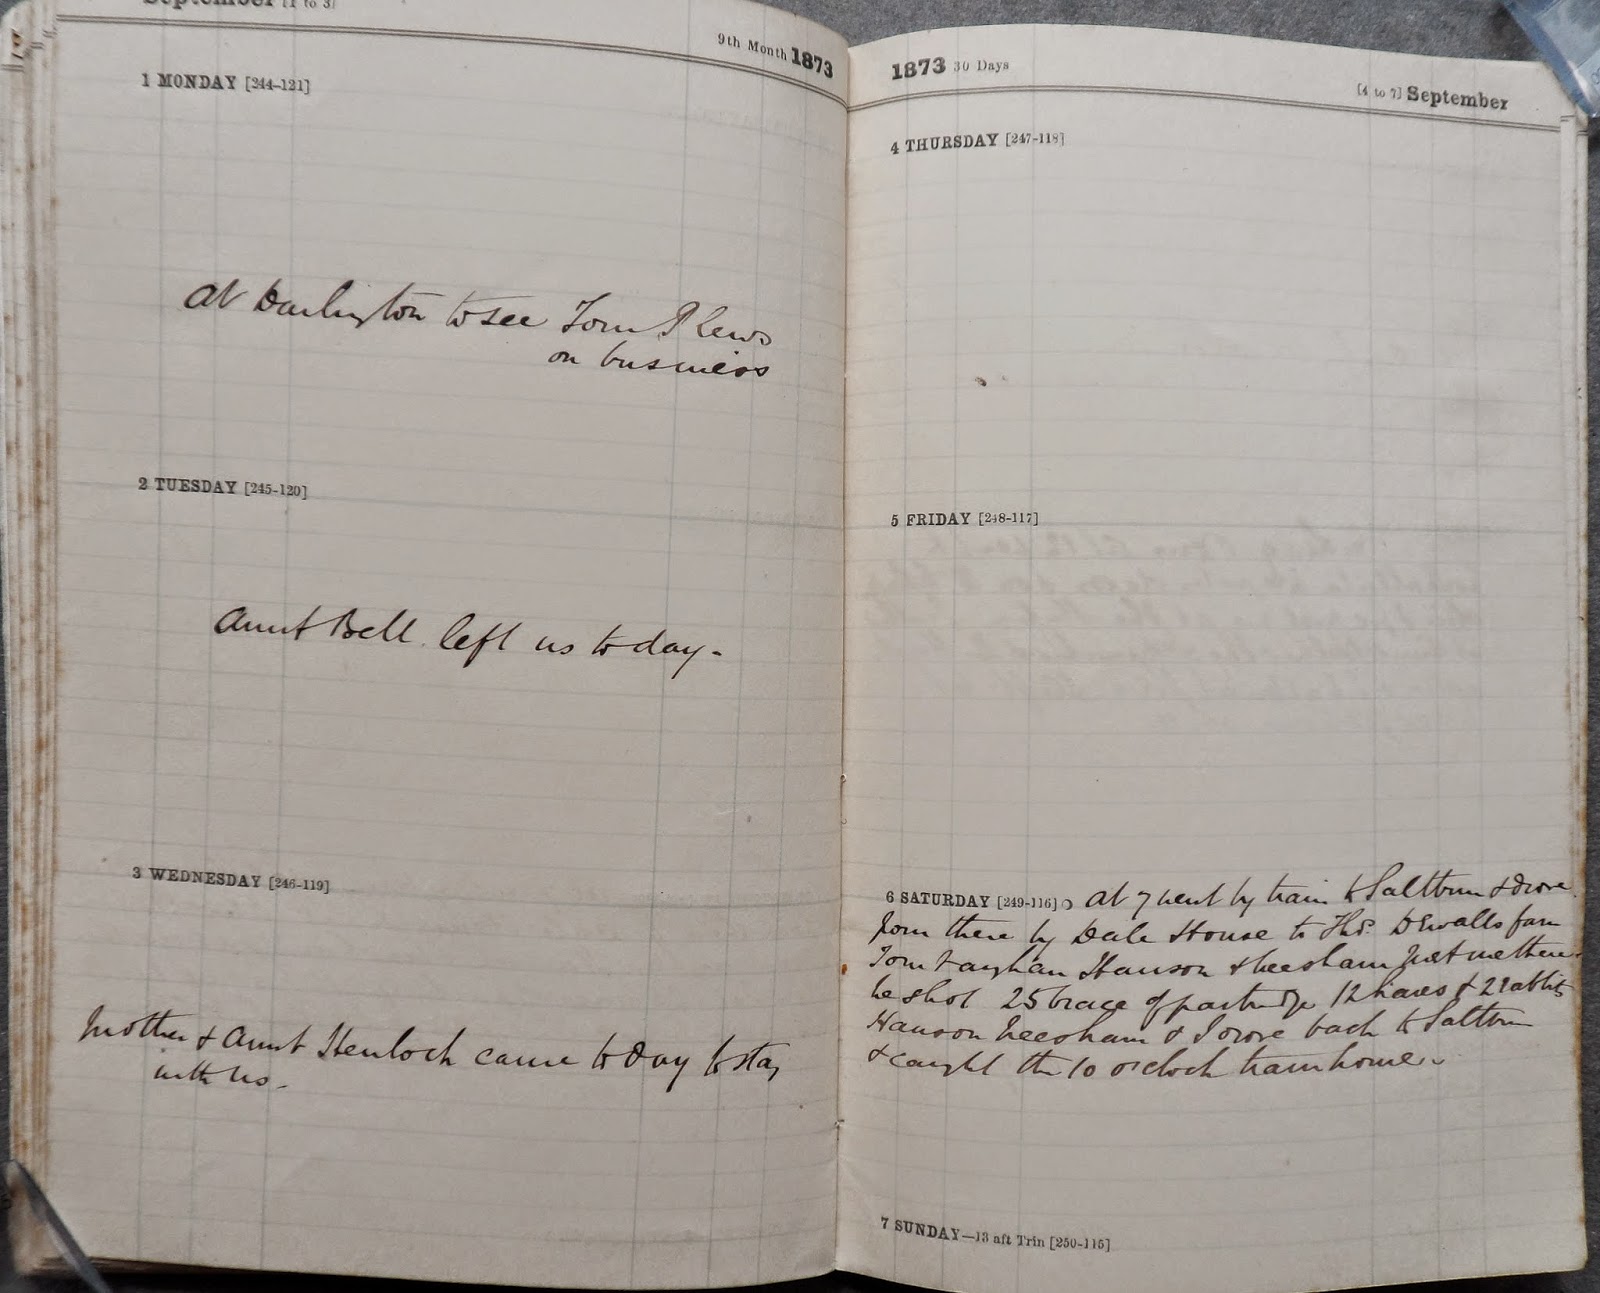 September [1 to 3]
9th Month 1873
1 MONDAY [244-121]
At Darlington to see Tom Plews
on business
2 TUESDAY [245-120]
Aunt Bell left us to day -
3 WEDNESDAY [246-119]
Mother & Aunt Henlock came to day to stay
with us -
1873 30 Days
[4 to 7] September
4 THURSDAY [247-118]
5 FRIDAY [248-117]
6 SATURDAY [249-116] At 7 went by train to Saltburn & drove
from there by Dale House to Thos. farm
Tom Vaughan Hanson & Neesham met me there
he shot 25 brace of partridge 12 hares & 2 rabbits
Hanson Neesham & I drove back to Saltburn
& caught the 10 o'clock train home -
7 SUNDAY—13 aft Trin [250-115]